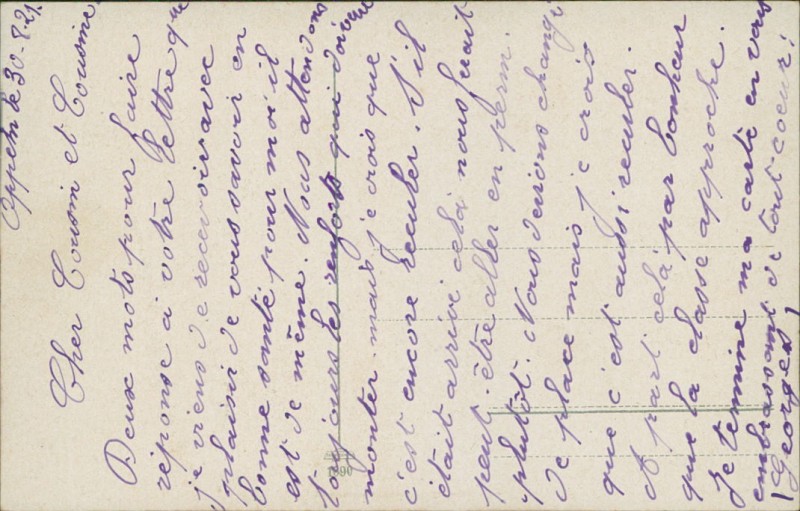 Oppeln le 30-8.21.
Cher Cousin et Cousine,
Deux mots pour faire
réponse à votre lettre que
je viens de recevoir avec
plaisir de vous savoir en
bonne santé pour moi il
est de même. Nous attendons
toujours les renforts qui doivent
monter mais je crois que
c'est encore reculer. S'il
était arrivé celà nous ferait
peut-être aller en perm.
plutôt. Nous devions changer
de place mais je crois
que c'est aussi reculer.
A part celà par bonheur
que la classe approche.
Je termine ma carte en vous
embrassant de tout coeur!
Georges